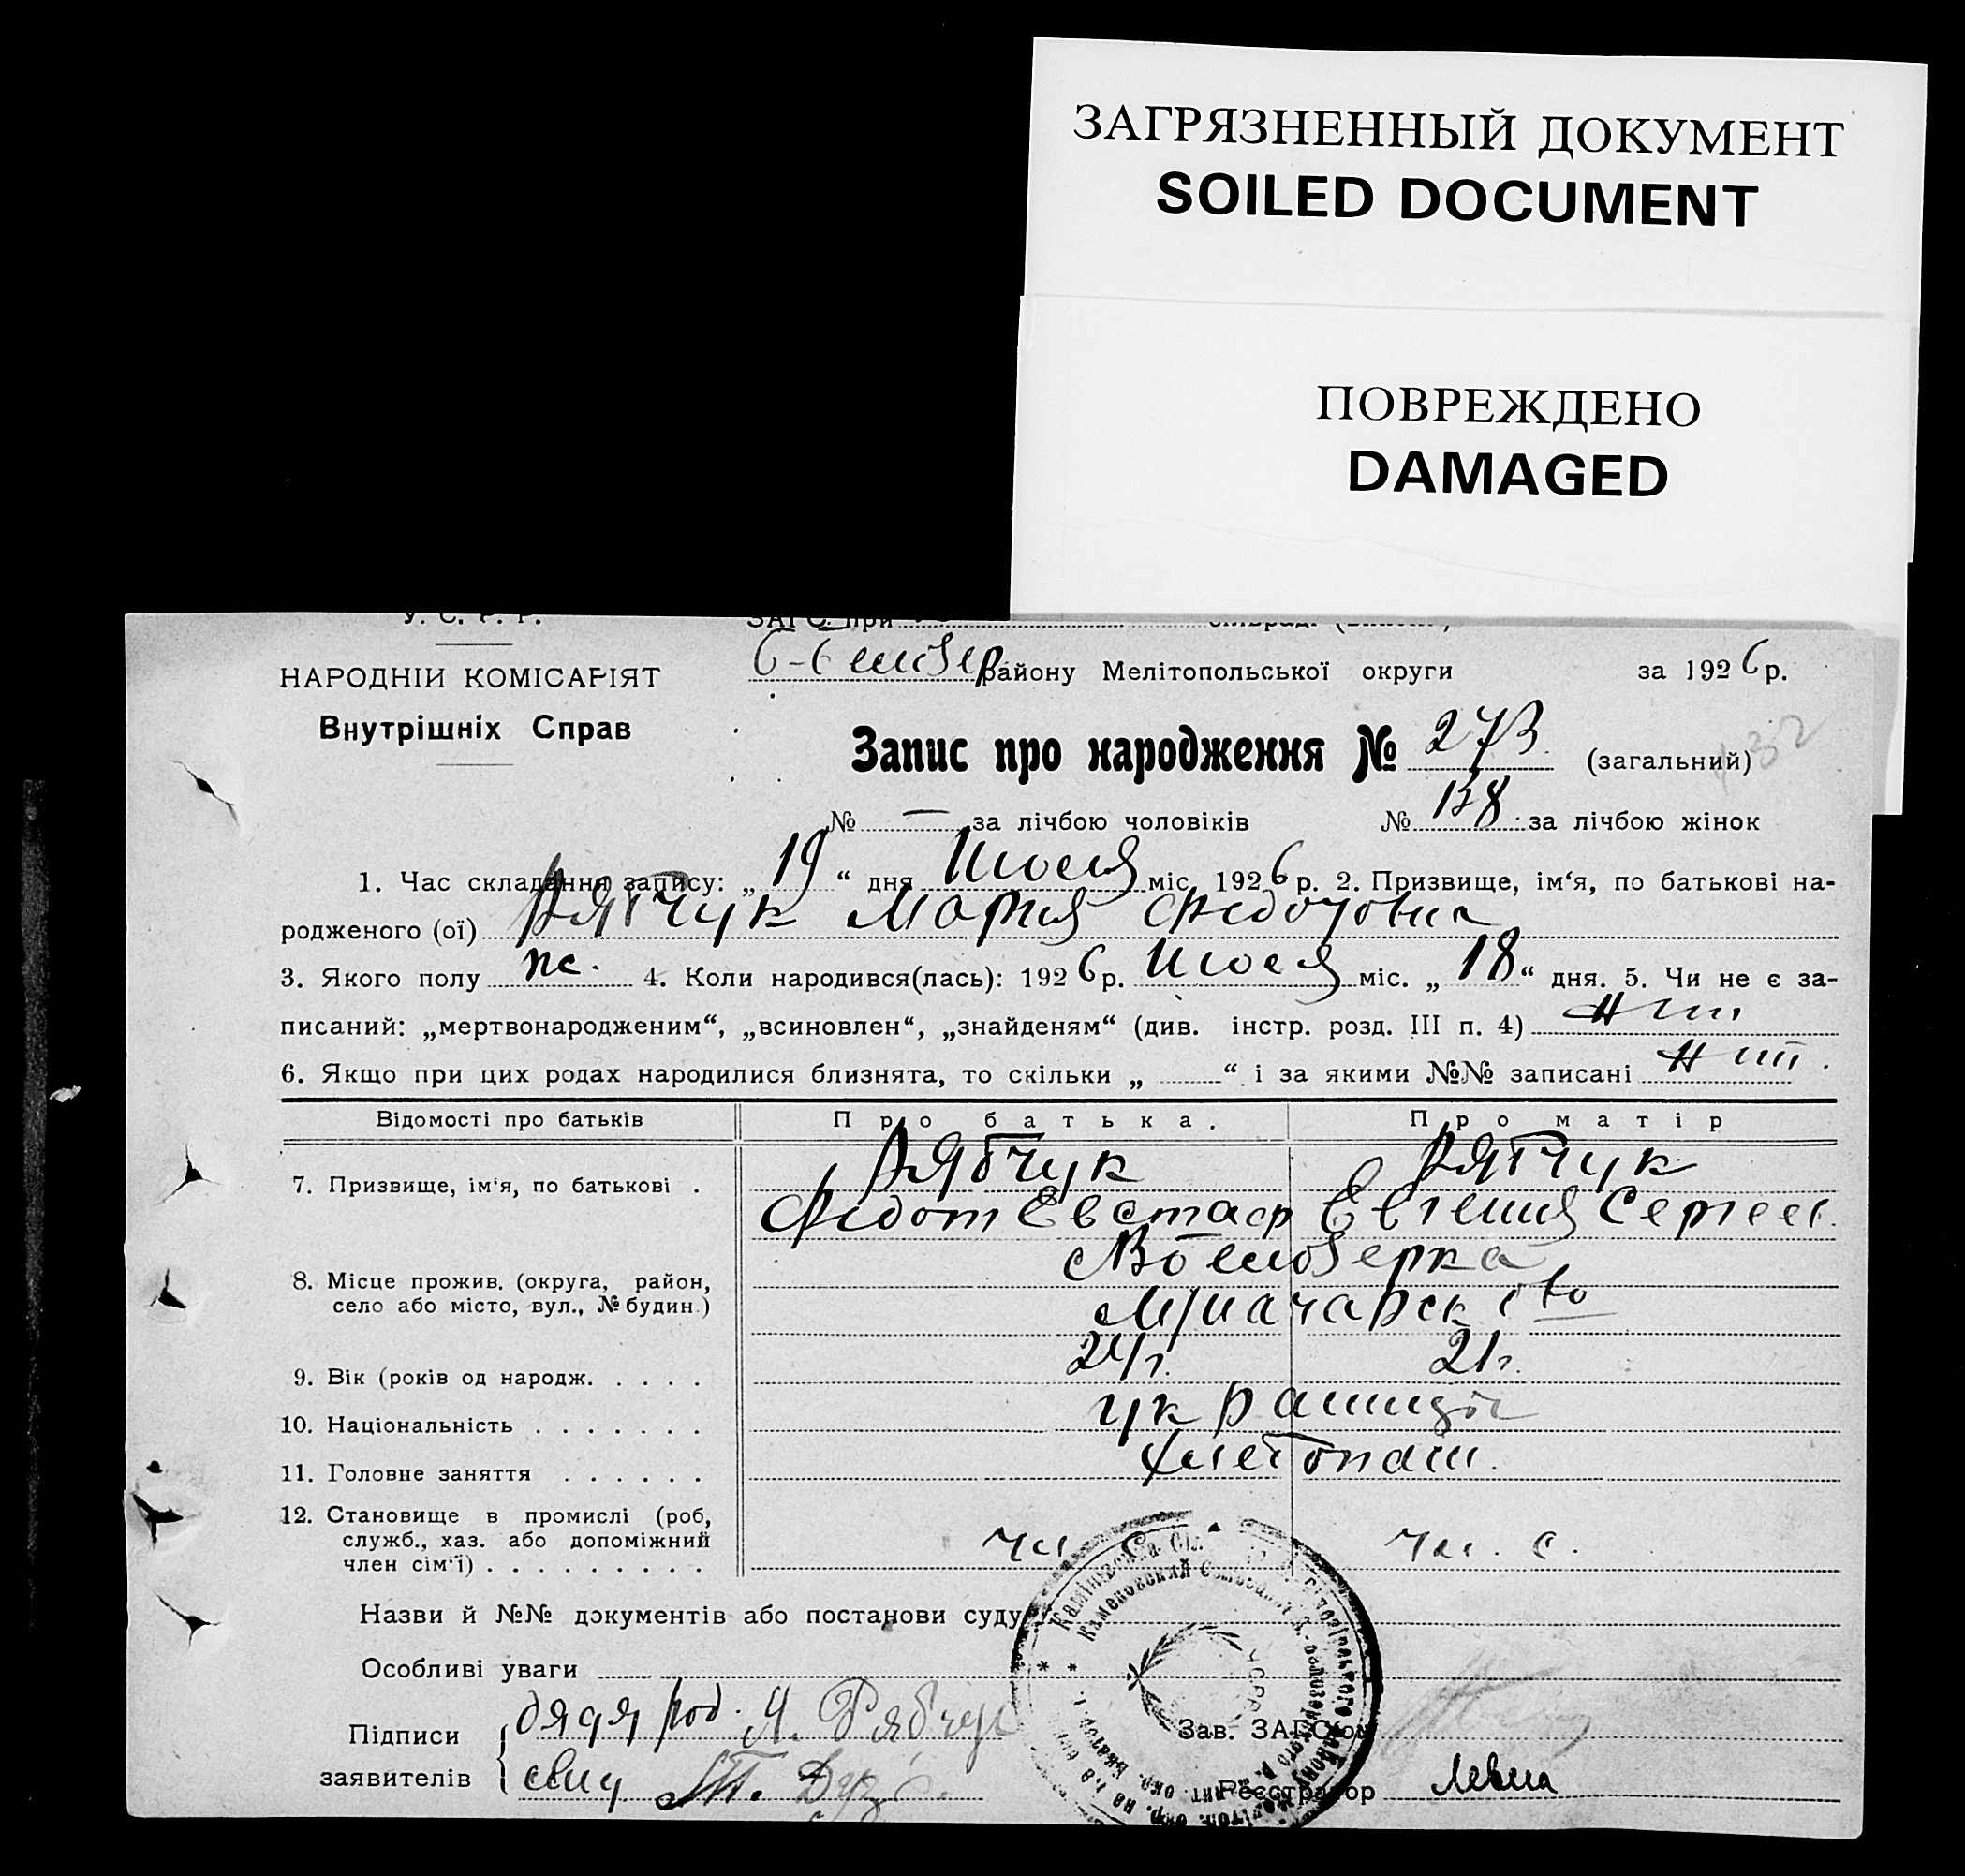 ЗАГРЯЗНЕННЫЙ ДОКУМЕНТ
SOILED DOCUMENT
ПОВРЕЖДЕНО
DAMAGED
У. С. Р. Р.
ЗАГС при
НАРОДНІЙ КОМІСАРІЯТ
Внутрішніх Справ
району Мелітопольської округи за 1926 р.
Запис про народження № 273 (загальний)
№ — за лічбою чоловіків № 138 за лічбою жінок
1. Час складання запису: „19“ дня Июля міс. 1926 р. 2. Призвище, ім‘я, по батькові на-
родженого (ої) Рябчук Мария Федотовна
3. Якого полу 4. Коли народився(лась): 1926 р. Июля міс. „18“ дня. 5. Чи не є за-
писаний: „мертвонародженим“, „всиновлен“, „знайденям“ (див. інстр. розд. III п. 4) Нит
6. Якщо при цих родах народилися близнята, то скільки „ “ і за якими №№ записані Нит.
Відомості про батьків Про батька. Про матір
7. Призвище, ім‘я, по батькові . Рябчук Рябчук
Федот Евстаф Евгения Сергеев.
8. Місце прожив. (округа, район,
село або місто, вул., № будин.)
9. Вік (років од народж. . . . . 24 г. 21 г.
10. Національність . . . . . . .
11. Головне заняття . . . . . . Хлебопаш.
12. Становище в промислі (роб,
служб., хаз. або допоміжний
член сім‘ї) . . . . . . . . . Чл. с. Чл. с.
Назви й №№ документів або постанови суду
Особливі уваги
Підписи дядя род. Я. Рябчук Зав. ЗАГСом
заявителів свид Реєстратор Левна